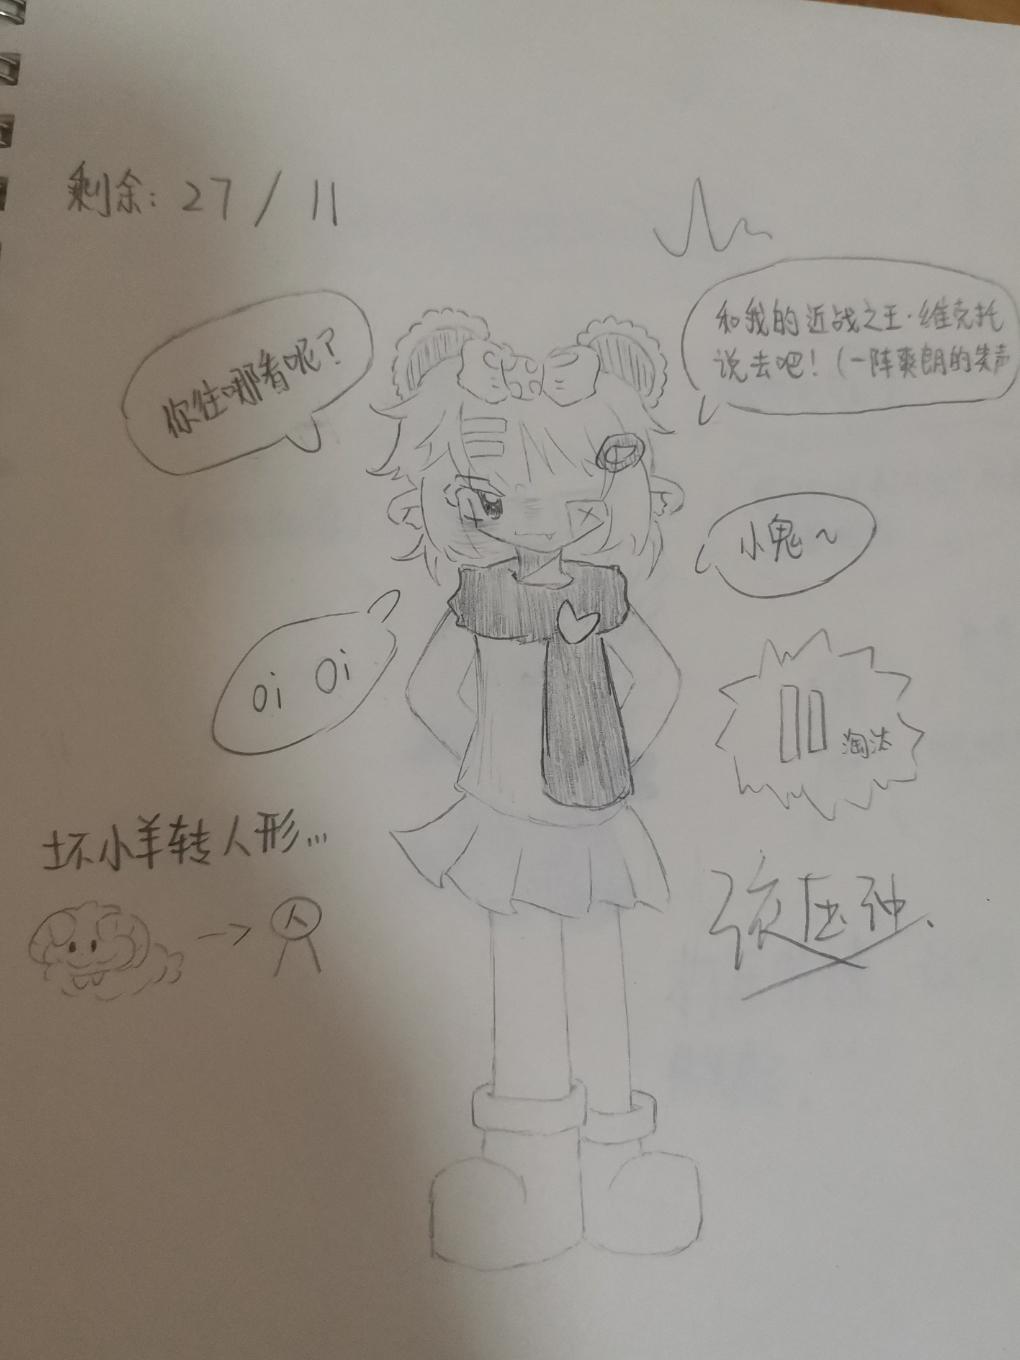 剩余: 27 / 11
你往哪看呢?
和我的近战之王·维克托
说去吧! (一阵爽朗的笑声
小鬼~
oi oi
淘汰
坏小羊转人形...
人